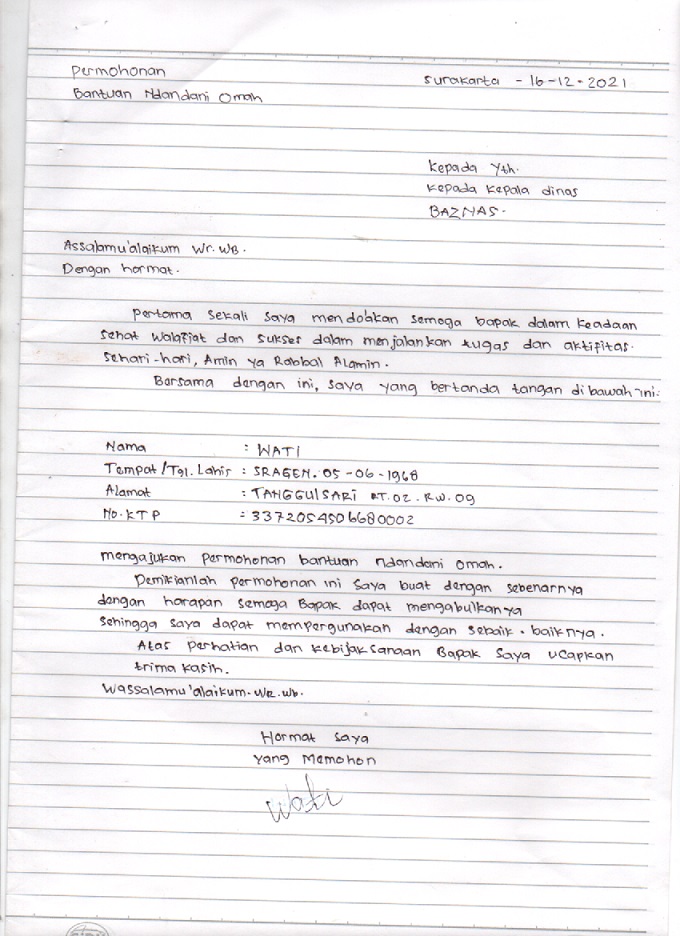 Permohonan
Surakarta - 16-12-2021
Bantuan Ndandani Omah
Kepada Yth.
Kepada Kepala dinas
BAZNAS.
Assalamu'alaikum Wr. WB.
Dengan hormat.
Pertama sekali saya mendo'akan semoga bapak dalam keadaan
sehat walafiat dan sukses dalam menjalankan tugas dan aktifitas.
sehari-hari, Amin ya Rabbal Alamin.
Bersama dengan ini, saya yang bertanda tangan dibawah ini:
Nama : WATI
Tempat/Tgl. Lahir : SRAGEN. 05-06-1968
Alamat : TANGGULSARI RT.02. RW.09
No.KTP : 3372054506680002
mengajukan permohonan bantuan ndandani omah.
Demikianlah permohonan ini saya buat dengan sebenarnya
dengan harapan semoga Bapak dapat mengabulkanya
sehingga saya dapat mempergunakan dengan sebaik-baiknya.
Atas perhatian dan kebijaksanaan Bapak saya ucapkan
trima kasih.
Wassalamu'alaikum. Wr. Wb.
Hormat saya
yang Memohon
Wati